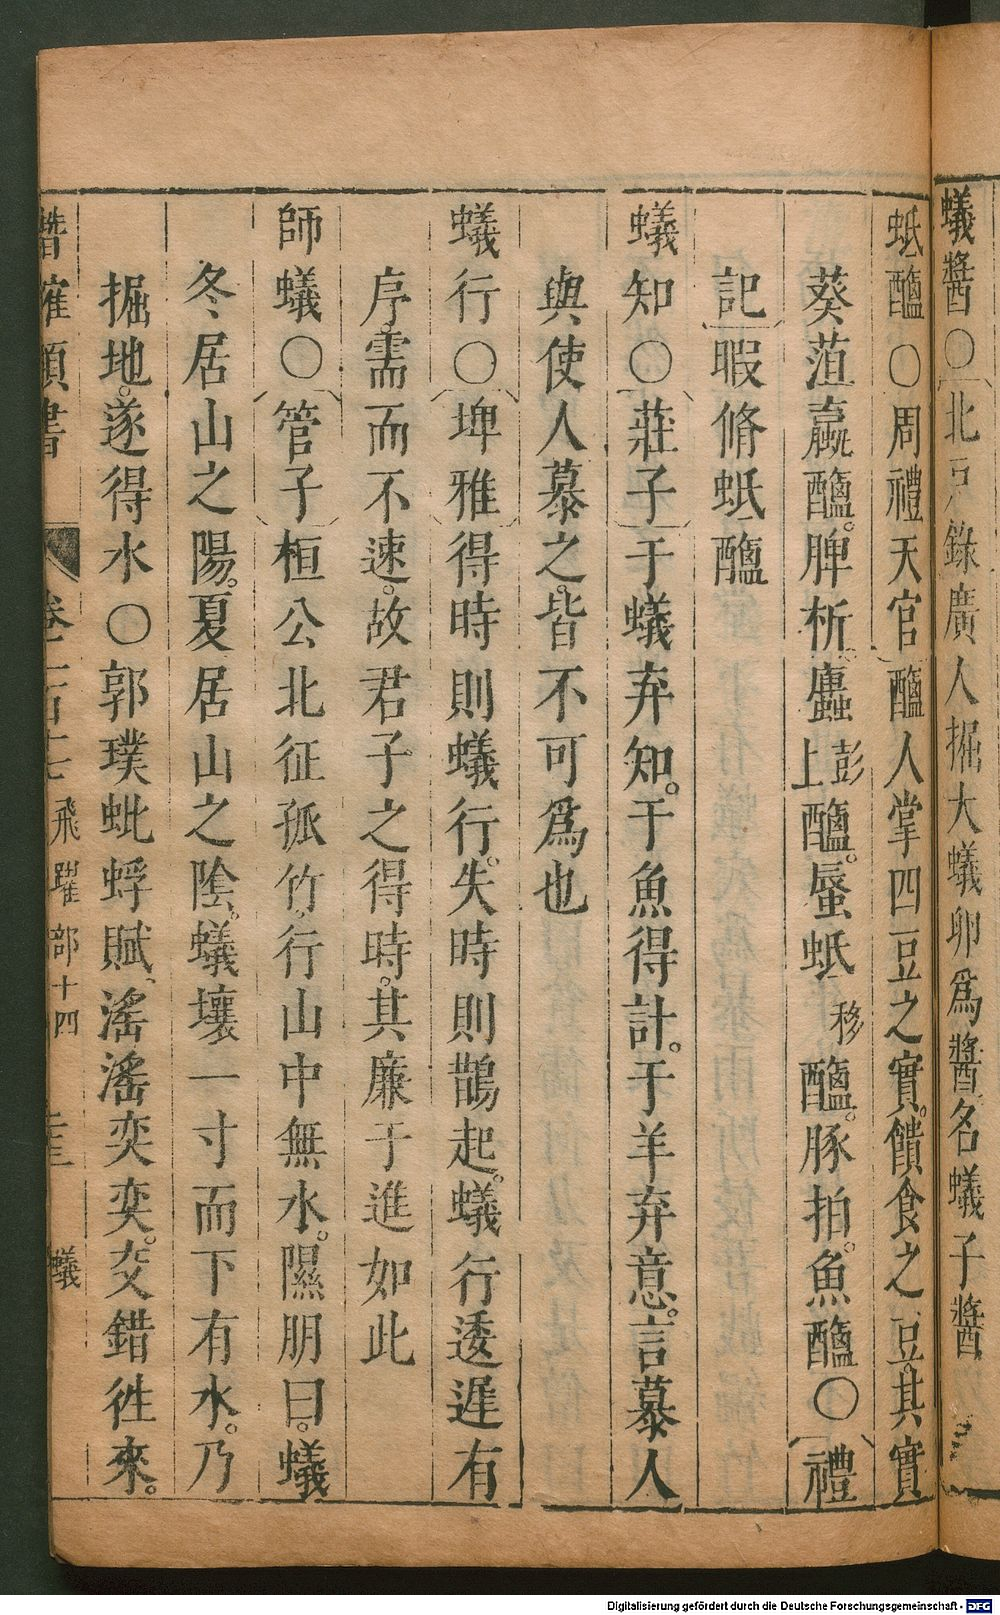 蟻醬〇北戸錄廣人掘大蟻卵爲醬名蟻子醬
蚳醢〇周禮天官醢人掌四豆之實饋食之豆其實
葵菹蠃醢脾析蠯彭上醢蜃蚳移醢豚拍魚醢〇禮
記暇脩蚳醢
蟻知〇莊子于蟻弃知于魚得計于羊弃意言慕人
與使人慕之皆不可爲也
蟻行〇埤雅得時則蟻行失時則鵲起蟻行逶遲有
序需而不速故君子之得時其廉于進如此
師蟻〇管子桓公北征孤竹行山中無水隰朋曰蟻
冬居山之陽夏居山之陰蟻壤一寸而下有水乃
掘地遂得水〇郭璞蚍蜉賦滛滛奕奕交錯徃來
潛確類書 卷一百十七 飛躍部十四 蟻
Digitalisierung gefördert durch die Deutsche Forschungsgemeinschaft - DFG